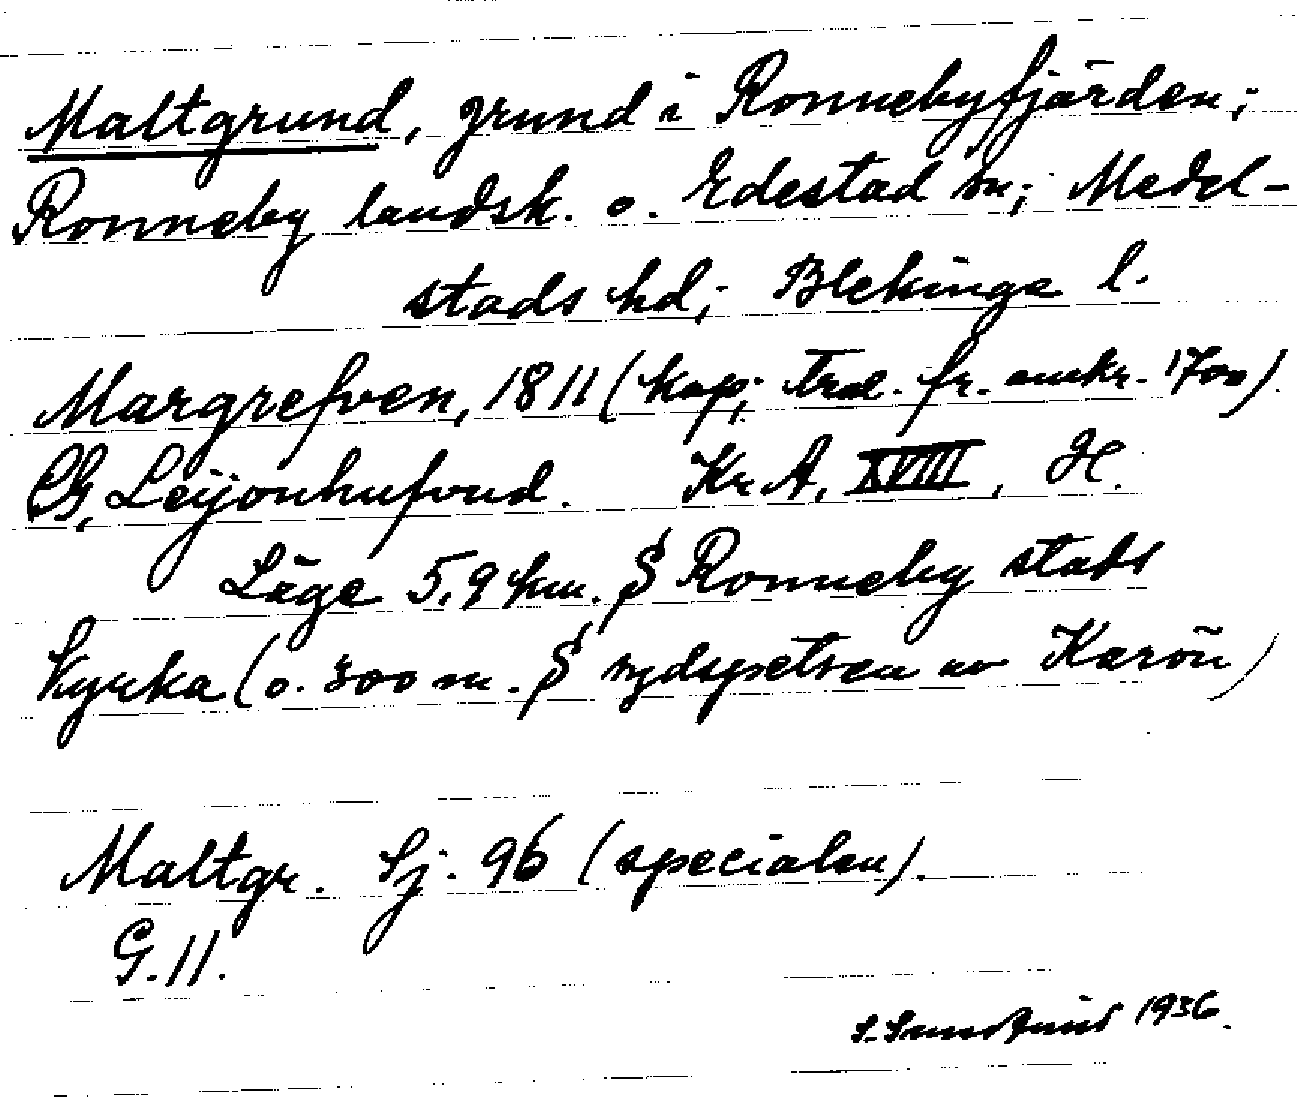 Maltgrund, grund i Ronnebyfjärden;
Ronneby landsk. o. Edestad sn; Medel-
stads hd; Blekinge l.
Margrefven, 1811 (kop; trol. fr. omkr. 1700).
CG, Leijonhufvud. Kr A, XVIII, H.
Läge 5,9 km. S Ronneby stads
kyrka (o. 300 m. S sydspetsen av Karön)
Maltgr. Sj. 96 (specialen).
G. 11.
S. 1936.